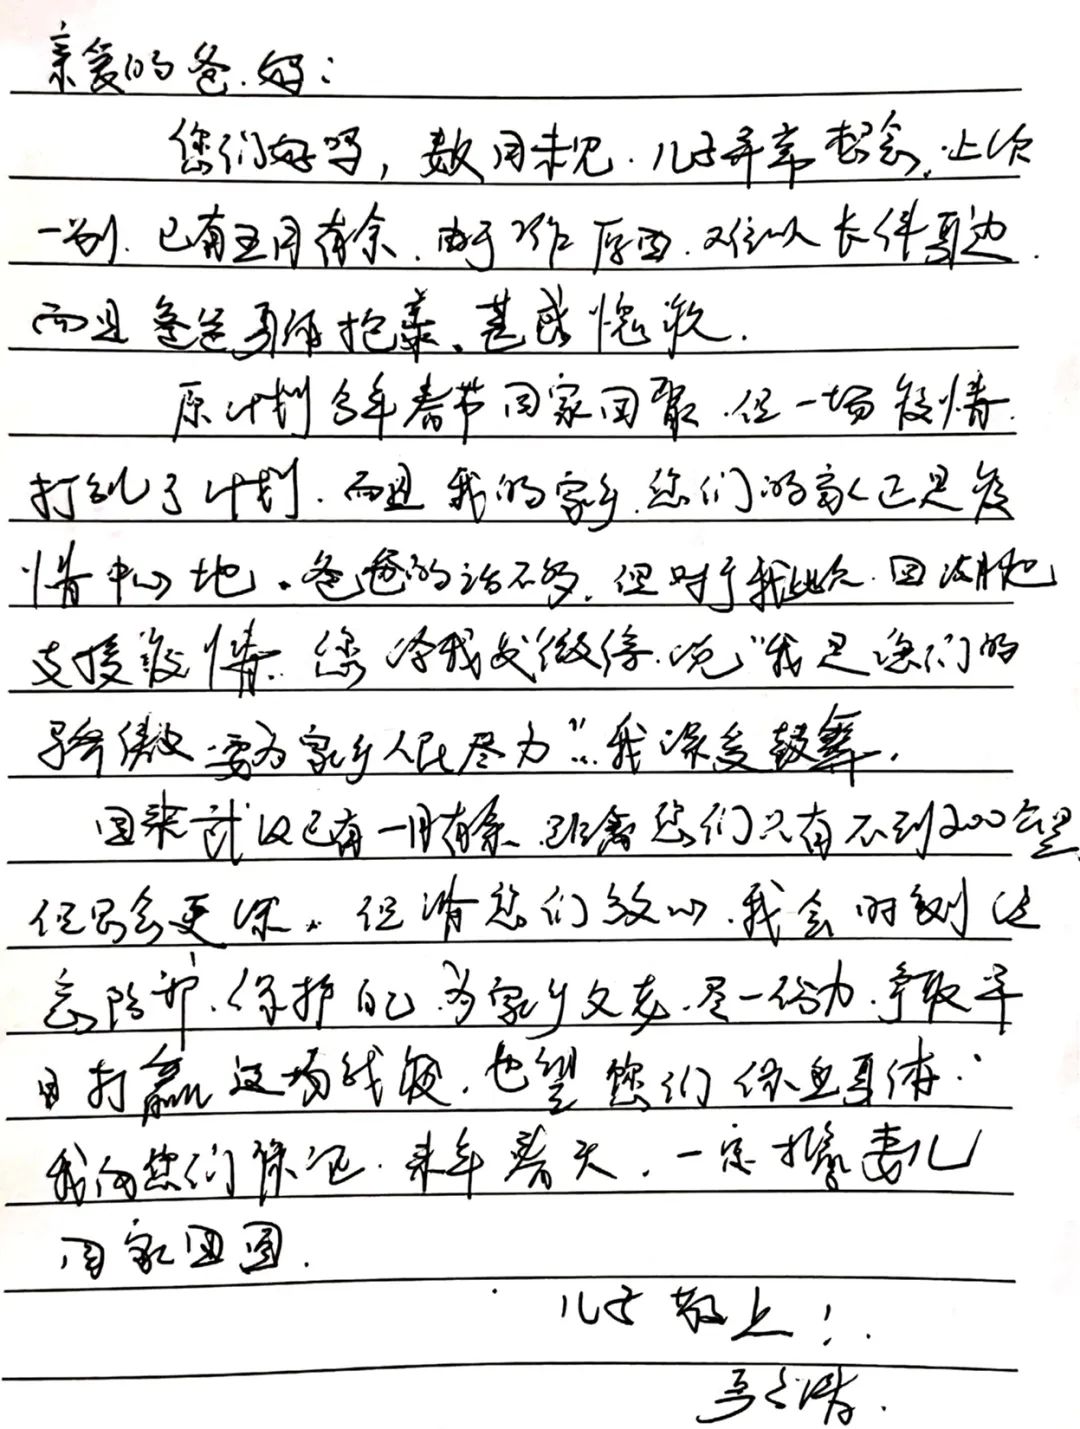 亲爱的爸.妈：
您们好吗，数月未见.儿子异常想念.上次
一别.已有五月有余.由于工作原因.难以长伴身边.
而且爸爸身体抱恙.甚感愧疚.
原计划今年春节回家团聚.但一场疫情.
打乱了计划.而且我的家乡.您们的家正是疫
情中心地.爸爸的话不多.但对于我此次.回湖北
支援疫情.您给我发微信.说“我是您们的
骄傲.要为家乡人民尽力”.我深受鼓舞.
回来武汉已有一月有余.距离您们只有不到200公里.
但思念更深.但请您们放心.我会时刻注
意防护.保护自己.为家乡父老.尽一份力.争取早
日打赢这场战役.也望您们保重身体.
我向您们保证.来年春天.一定携妻儿
回家团圆.
儿子敬上！.